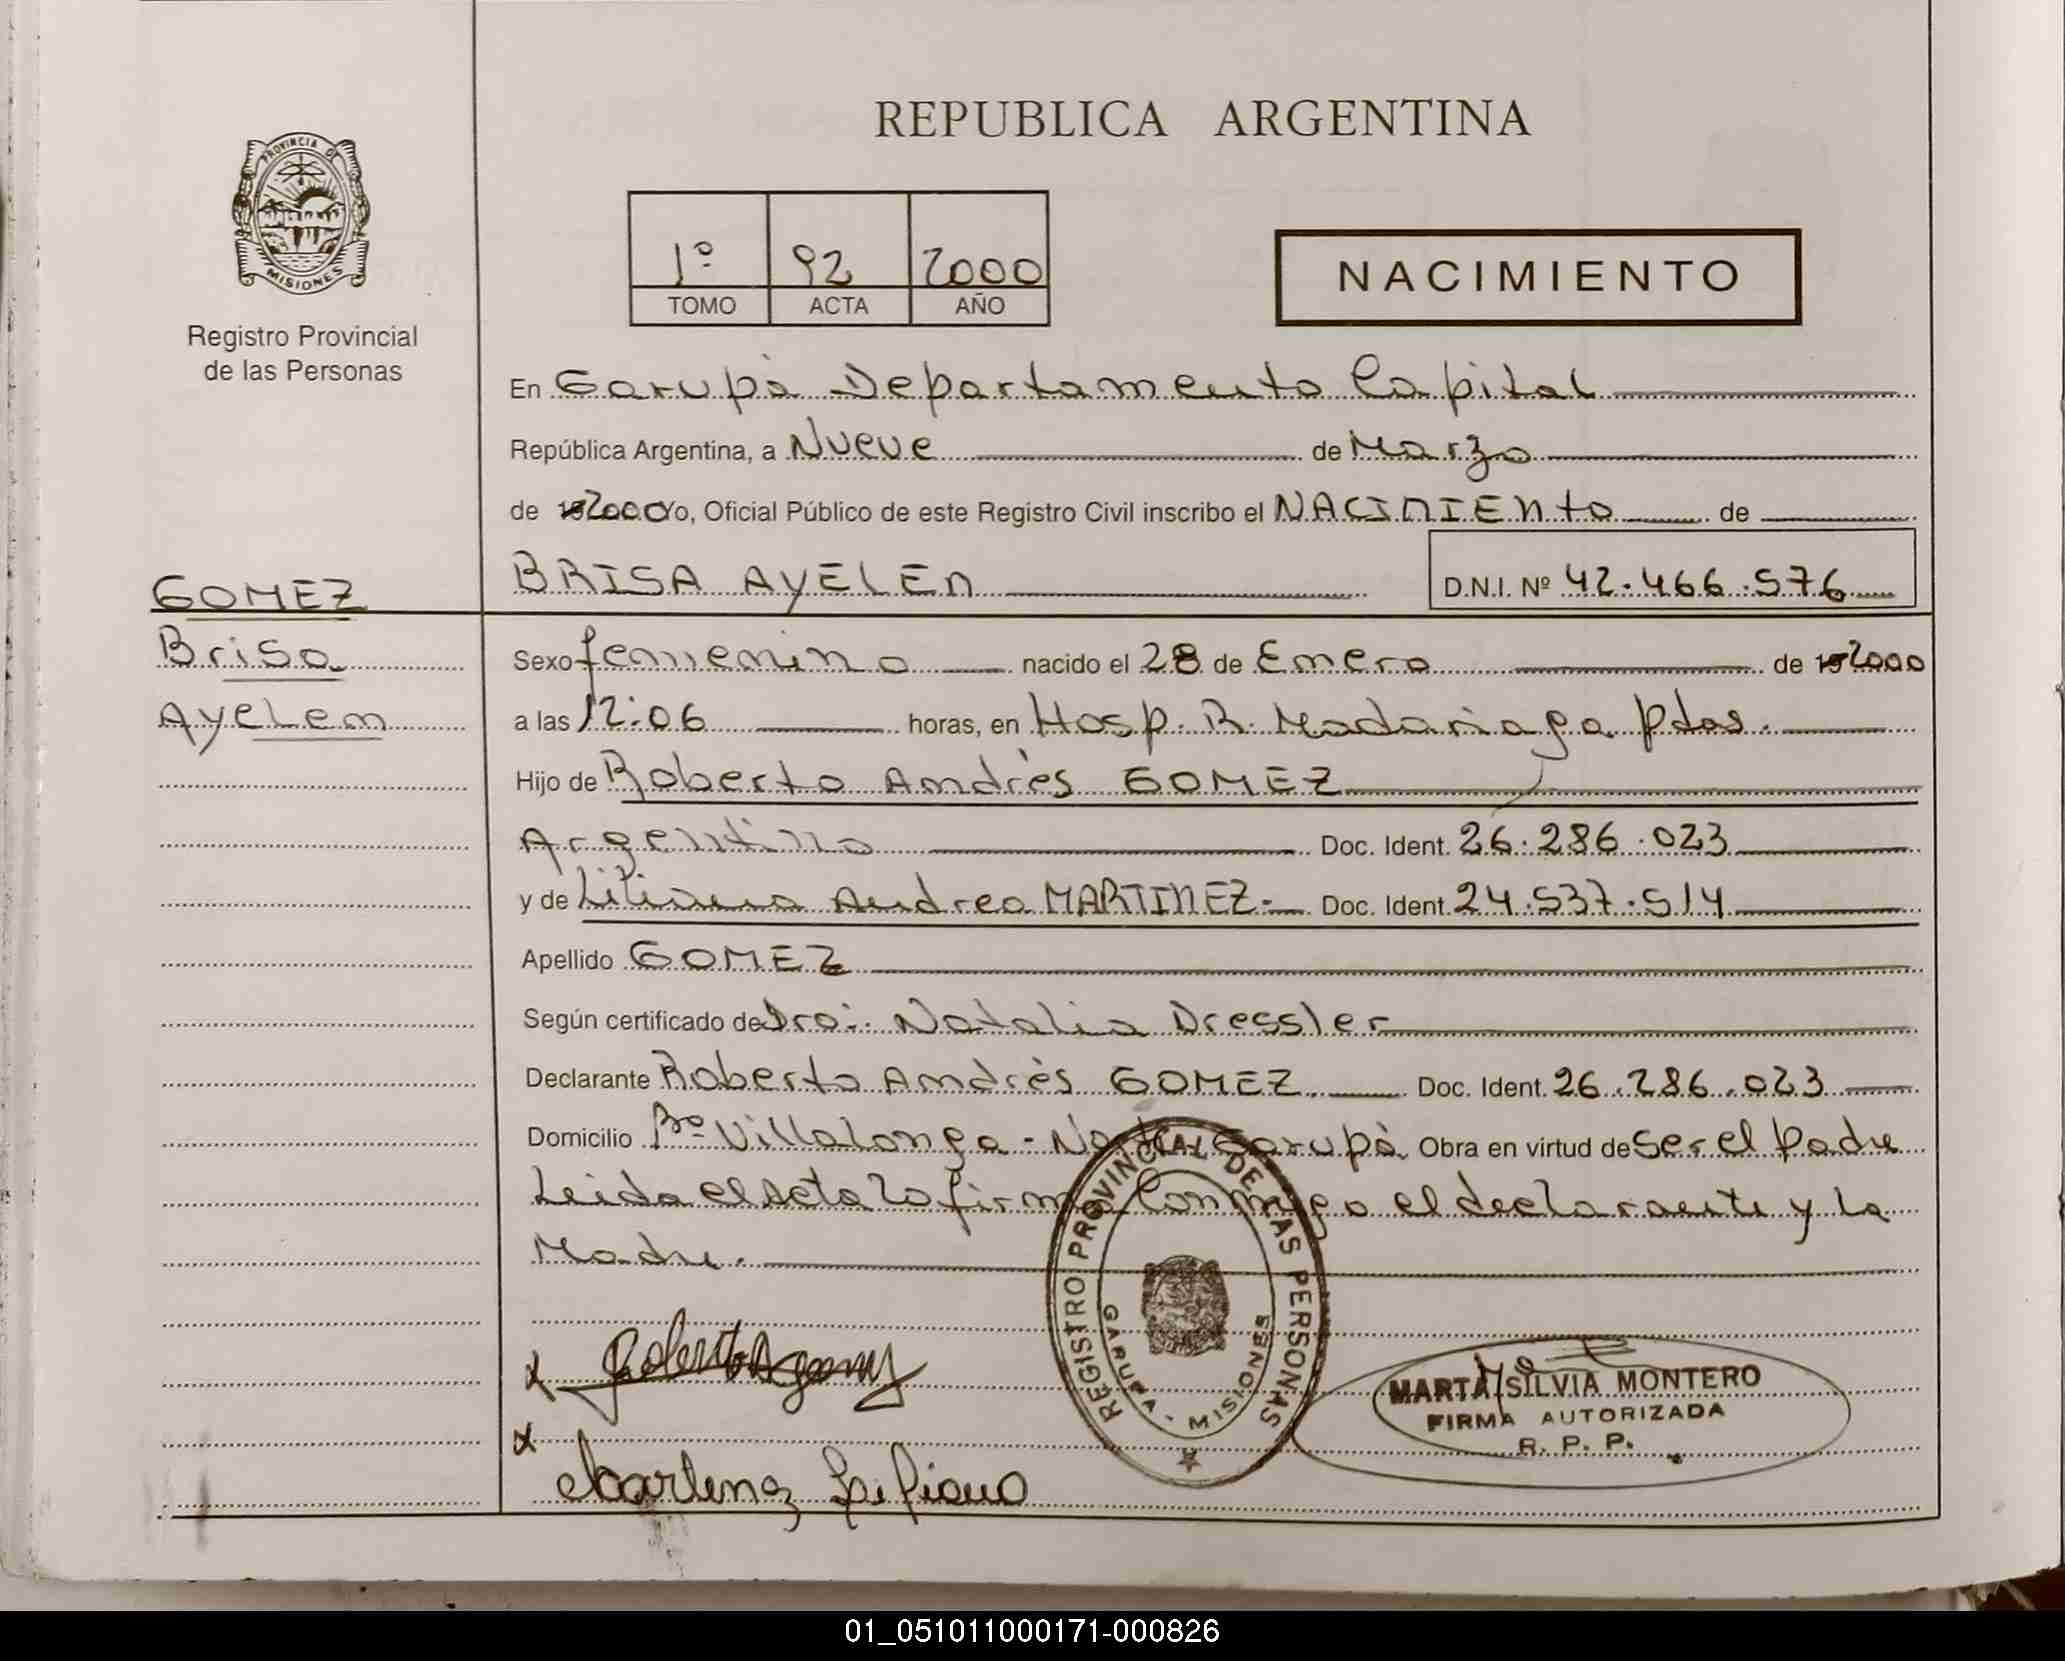 REPUBLICA ARGENTINA
PROVINCIA DE
MISIONES
Registro Provincial
de las Personas
1º 92 2000
TOMO ACTA AÑO
NACIMIENTO
En Garupà Departamento Capital
República Argentina, a Nueve de Marzo
de 2000 Yo, Oficial Público de este Registro Civil inscribo el NACIMIENto de
GOMEZ
Brisa
Ayelen
BRISA AYELEN D.N.I. Nº 42.466.576
Sexo femenino nacido el 28 de Enero de 2000
a las 12:06 horas, en Hosp. R. Madariaga Pdas.
Hijo de Roberto Andrès GOMEZ
Argentino Doc. Ident. 26.286.023
y de Liliana Andrea MARTINEZ.- Doc. Ident. 24.537.514
Apellido GOMEZ
Según certificado de Dra: Natalia Dressler
Declarante Roberto Andrès GOMEZ Doc. Ident. 26.286.023
Domicilio Bº Villalonga - Garupà Obra en virtud de Ser el Padre
Leida el Acta lo firma Conmigo el declarante y la
Madre.
REGISTRO PROVINCIAL DE LAS PERSONAS
GARUPA - MISIONES
x Roberto A gomez
x Martinez Liliana
MARTA SILVIA MONTERO
FIRMA AUTORIZADA
R. P. P.
01_051011000171-000826